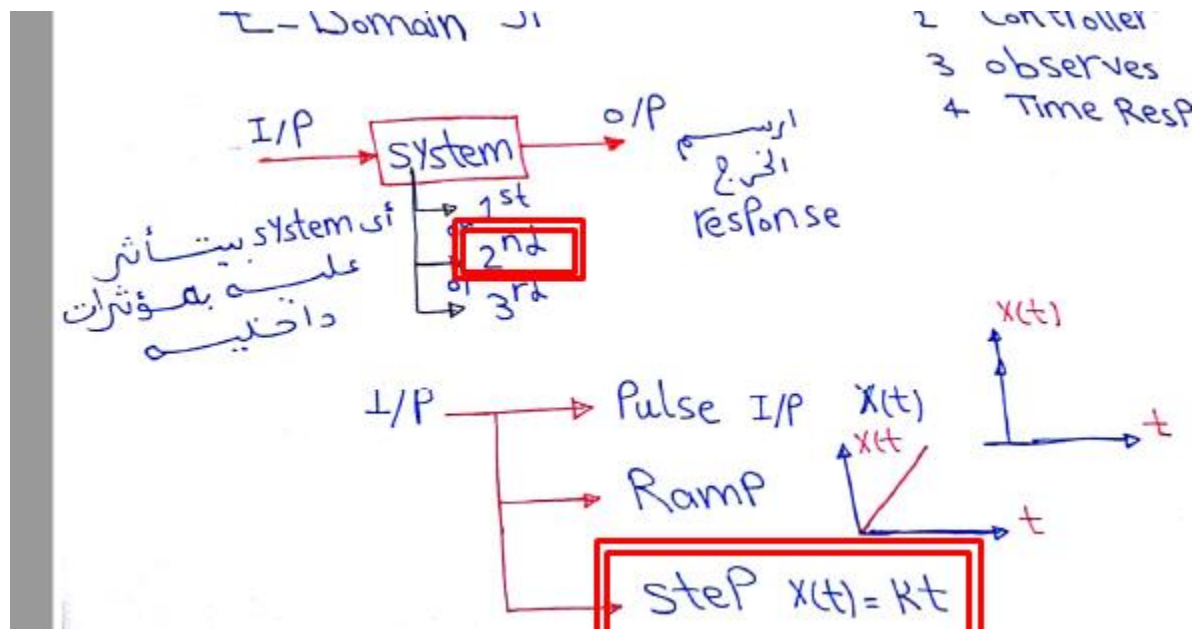 t-Domain ال
2 Controller
3 observes
4 Time Resp
I/P
system
O/P
ارسم
الخرج
response
1st
or
2nd
or
3rd
أى system بيتأثر
عليه بمؤثرات
داخليه
I/P
Pulse I/P X(t)
X(t)
t
Ramp
X(t
t
step X(t)=Kt